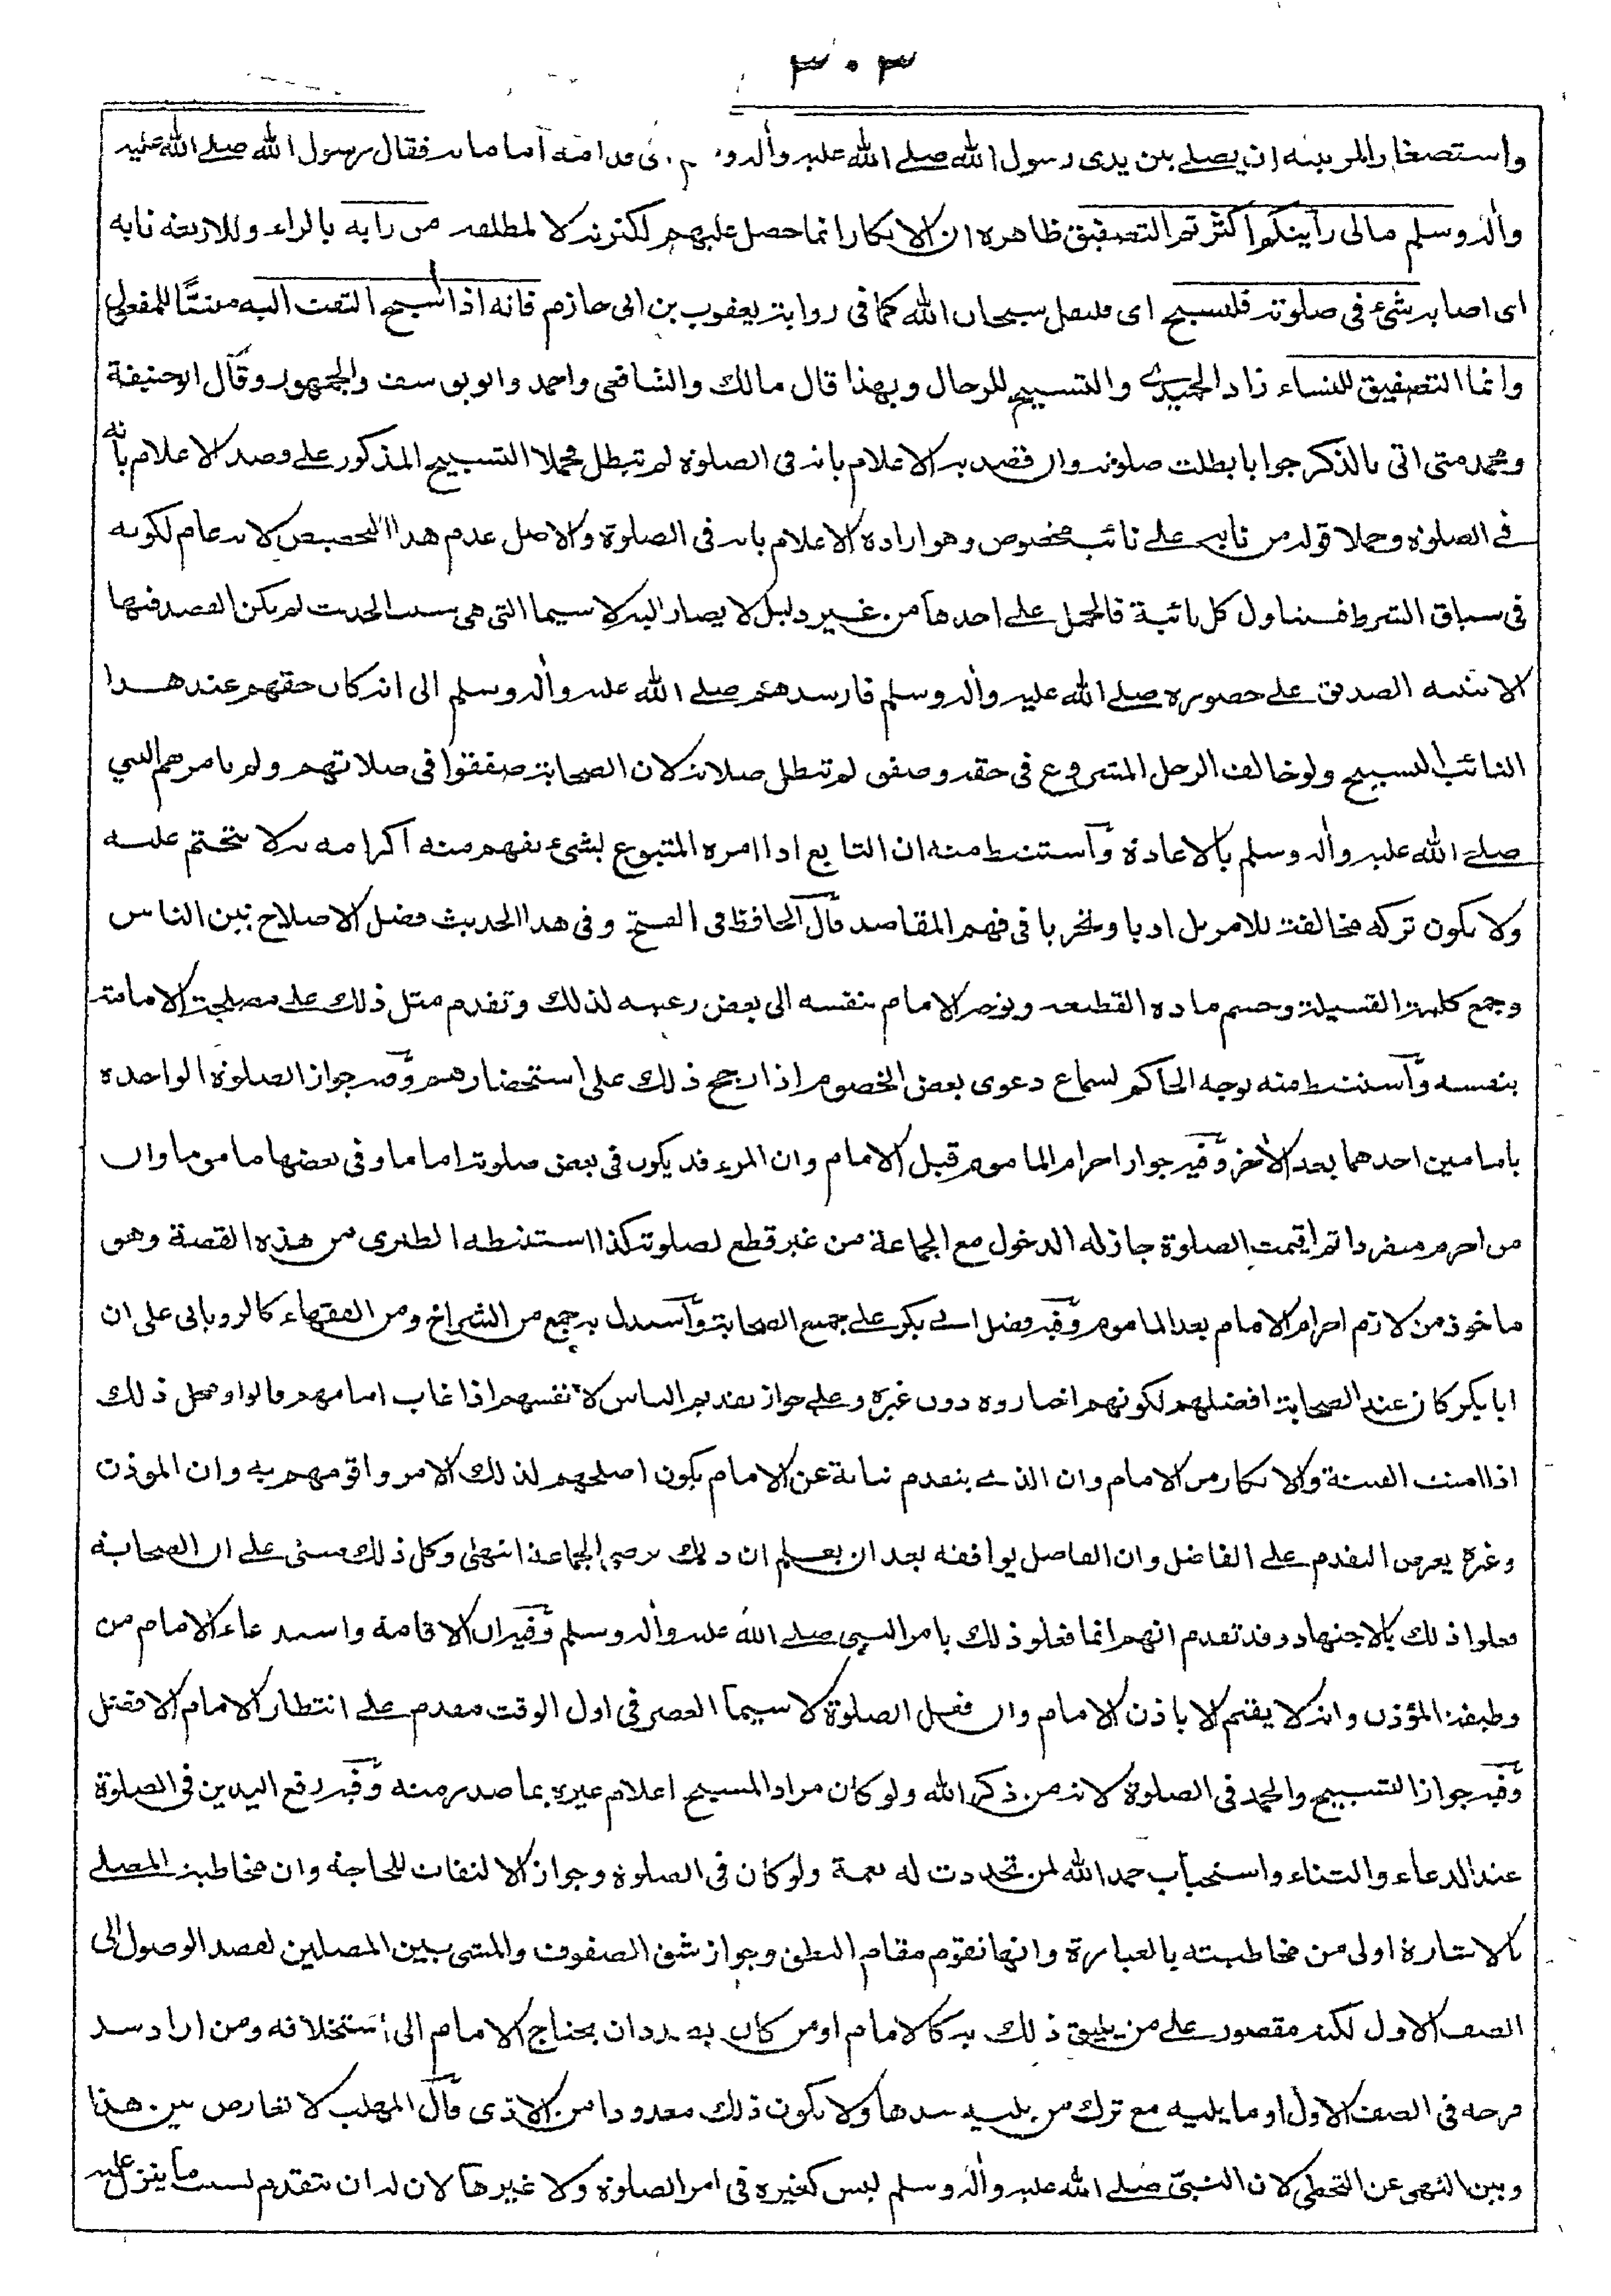 ٣٠٣
واستصغار المرتبته ان يصلى بين يدى رسول الله صلے الله عليه واله و قدامه اماما به فقال رسول الله صلے الله عليه
واله وسلم مالى رأيتكم اكثرتم التصفيق ظاهره ان الانكار انما حصل عليهم لكثرته لا لمطلقه من رابه بالراء وللاربعة نابه
اى اصابه شىء فى صلوته فليسبح اى فليقل سبحان الله كما فى رواية يعقوب بن ابى حازم فانه اذا سبح التفت اليه مبنيًّا للمفعول
وانما التصفيق للنساء زاد الحميدے والتسبيح للرجال وبهذا قال مالك والشافعى واحمد وابو يوسف والجمهور وقال ابو حنيفة
ومحمد متى اتى بالذكر جوابا بطلت صلوته وان قصد به الاعلام بانه فى الصلوة لم تبطل فحملا التسبيح المذكور على قصد الاعلام بانه
فے الصلوة وحملا قوله من نابه علے نائب مخصوص وهو ارادة الاعلام بانه فى الصلوة والاصل عدم هذا التخصيص لانه عام لكونه
فى سياق الشرط فيتناول كل نائبة فالحمل علے احدها من غير دليل لا يصار اليه لا سيما التى هى سبب الحديث لم يكن القصد فيها
الا تنبيه الصديق على حضوره صلے الله عليه واله وسلم فارشدهم صلے الله عليه واله وسلم الى انه كان حقهم عند هذا
النائب التسبيح ولو خالف الرجل المشروع فى حقه وصفق لم تبطل صلاته لان الصحابة صفقوا فى صلاتهم ولم يامرهم النبي
صلے الله عليه واله وسلم بالاعادة وآستنبط منه ان التابع اذا امره المتبوع بشىء يفهم منه اكرامه به لا يتحتم عليه
ولا يكون تركه مخالفة للامر بل ادبا وتحريا فى فهم المقاصد قال الحافظ فى الفتح وفى هذا الحديث فضل الاصلاح بين الناس
وجمع كلمة القبيلة وحسم مادة القطيعة وتوجه الامام بنفسه الى بعض رعيته لذلك وتقدم مثل ذلك على مصلحة الامامة
بنفسه وآستنبط منه توجه الحاكم لسماع دعوى بعض الخصوم اذا رجح ذلك على استحضارهم وفيه جواز الصلوة الواحدة
بامامين احدهما بعد الأخر وفيه جواز احرام الماموم قبل الامام وان المرء قد يكون فى بعض صلوته اماما وفى بعضها ماموما وان
من احرم منفردا ثم اقيمت الصلوة جاز له الدخول مع الجماعة من غير قطع لصلوته كذا استنبطه الطبرى من هذه القصة وهو
ماخوذ من لازم احرام الامام بعد الماموم وفيه فضل ابے بكر على جميع الصحابة وآستدل به جمع من الشراخ ومن الفقهاء كالرويانى على ان
ابا بكر كان عند الصحابة افضلهم لكونهم اختاروه دون غيره وعلے جواز تقديم الناس لانفسهم اذا غاب امامهم قالوا ومحل ذلك
اذا امنت الفتنة والانكار من الامام وان الذے يتقدم نيابة عن الامام يكون اصلحهم لذلك الامر واقومهم به وان الموذن
وغيره يعرض التقدم علے الفاضل وان الفاضل يوافقه بعد ان يعلم ان ذلك برضى الجماعة انتهى وكل ذلك مبنى علے ان الصحابة
فعلوا ذلك بالاجتهاد وقد تقدم انهم انما فعلو ذلك بامر النبى صلے الله عليه واله وسلم وفيه ان الاقامة واستدعاء الامام من
وظيفة المؤذن وانه لا يقيم الا باذن الامام وان فعل الصلوة لا سيما العصر فى اول الوقت مقدم علے انتظار الامام الافضل
وفيه جواز التسبيح والحمد فى الصلوة لانه من ذكر الله ولو كان مراد المسبح اعلام غيره بما صدر منه وفيه رفع اليدين فى الصلوة
عند الدعاء والثناء واستحباب حمد الله لمن تجددت له نعمة ولو كان فى الصلوة وجواز الالتفات للحاجة وان مخاطبة المصلے
بالاشارة اولى من مخاطبته بالعبارة وانها تقوم مقام النطق وجواز شق الصفوف والمشى بين المصلين لقصد الوصول الى
الصف الاول لكنه مقصور علے من يليق ذلك به كالامام او من كان بصدد ان يحتاج الامام الى استخلافه ومن اراد سد
فرجه فى الصف الاول او ما يليه مع ترك من يليه سدها ولا يكون ذلك معدودا من الاذى قال المهلب لا تعارض بين هذا
وبين النهى عن التخطى لان النبىّ صلے الله عليه واله وسلم ليس كغيره فى امر الصلوة ولا غيرها لان له ان يتقدم بسبب ما ينزل عليه